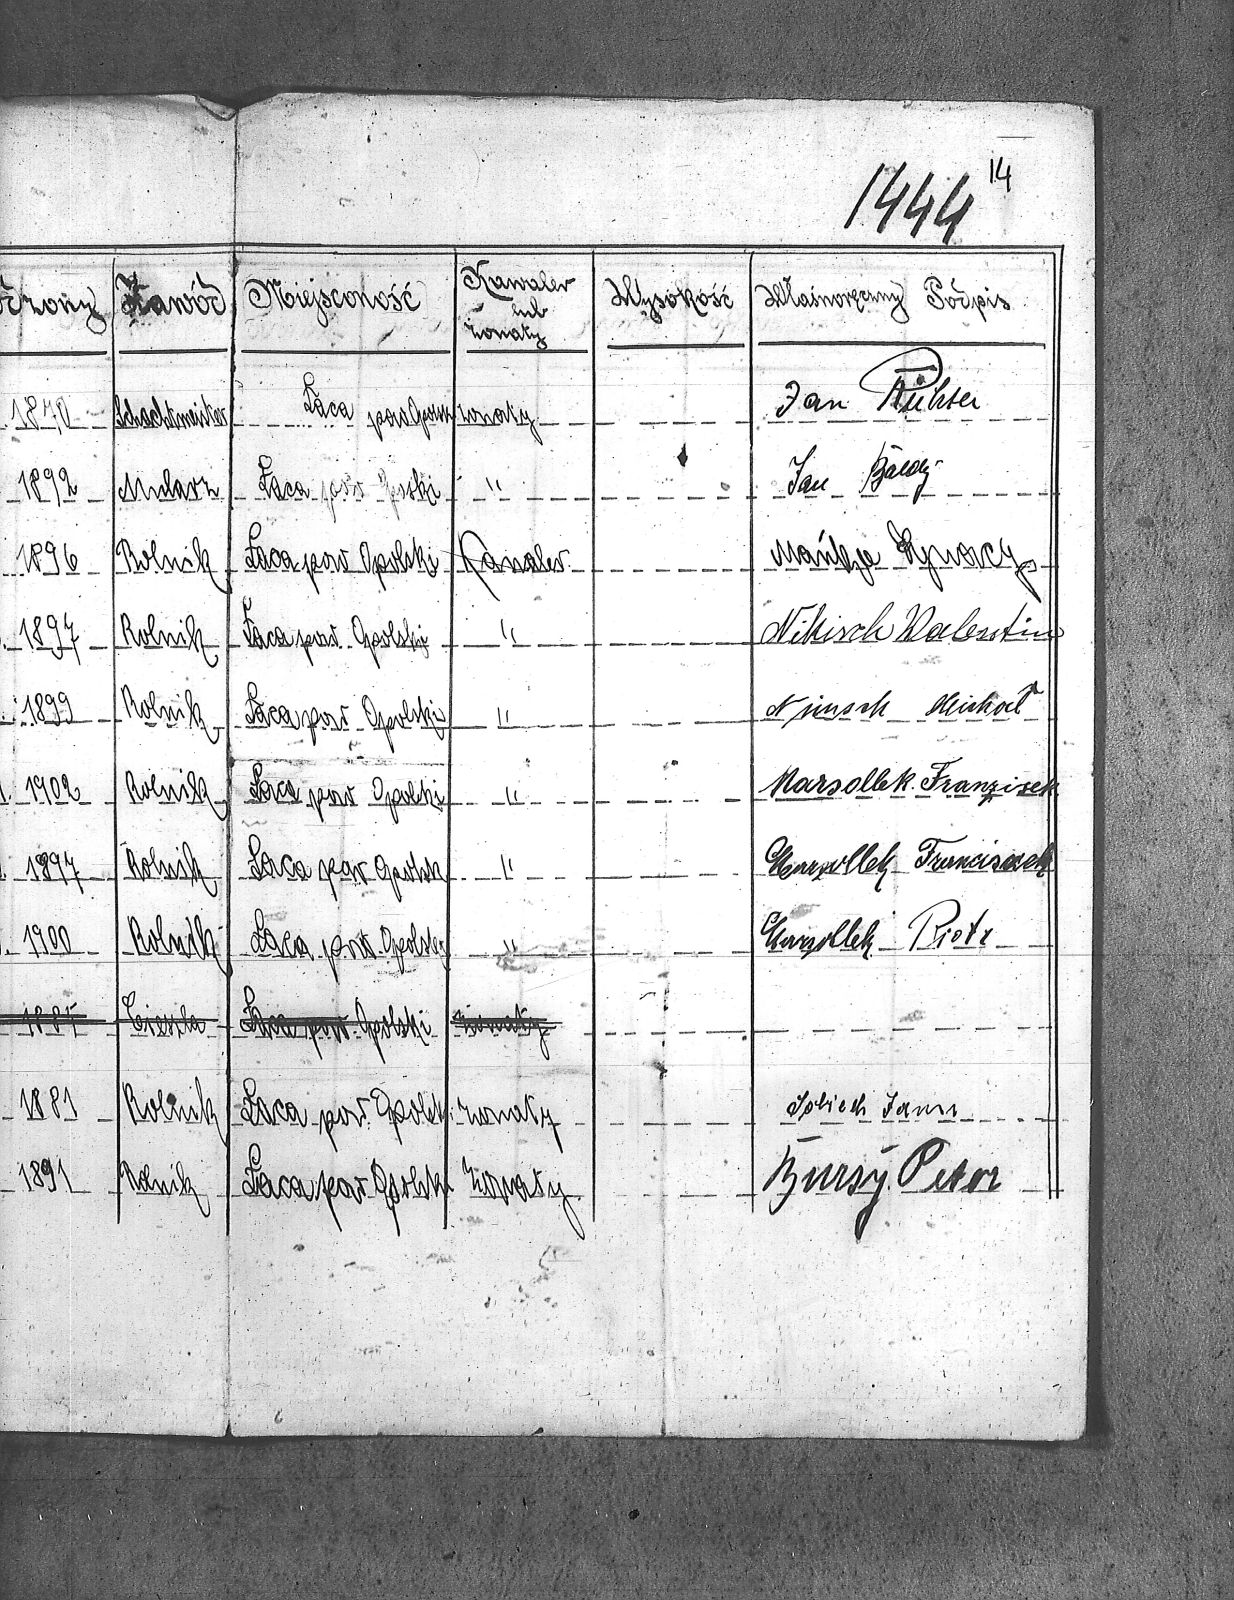 14
1444
Zawód Miejscowość Kawaler lub żonaty Wysokość Własnoręczny Podpis
1870 Schachtmeister Łaca pow żonaty Jan Richter
1892 Mularz Łaca pow " Jan
1896 Rolnik Łaca pow Opolski Kawaler
1897 Rolnik Łaca pow. Opolski " Nikisch Valentin
1899 Rolnik Łaca pow Opolski "
1902 Rolnik Łaca pow Opolski " Marsollek Franzisek
1897 Rolnik Łaca pow Opolsk " Marzollek Franciszek
1900 Rolnik Łaca pow. Opolski " Marzollek Piotr
Ciesla Łaca pow. Opolski żonaty
1881 Rolnik Łaca pow. Opolsk żonaty
1891 Rolnik Łaca pow Opolski żonaty Bursy Peter